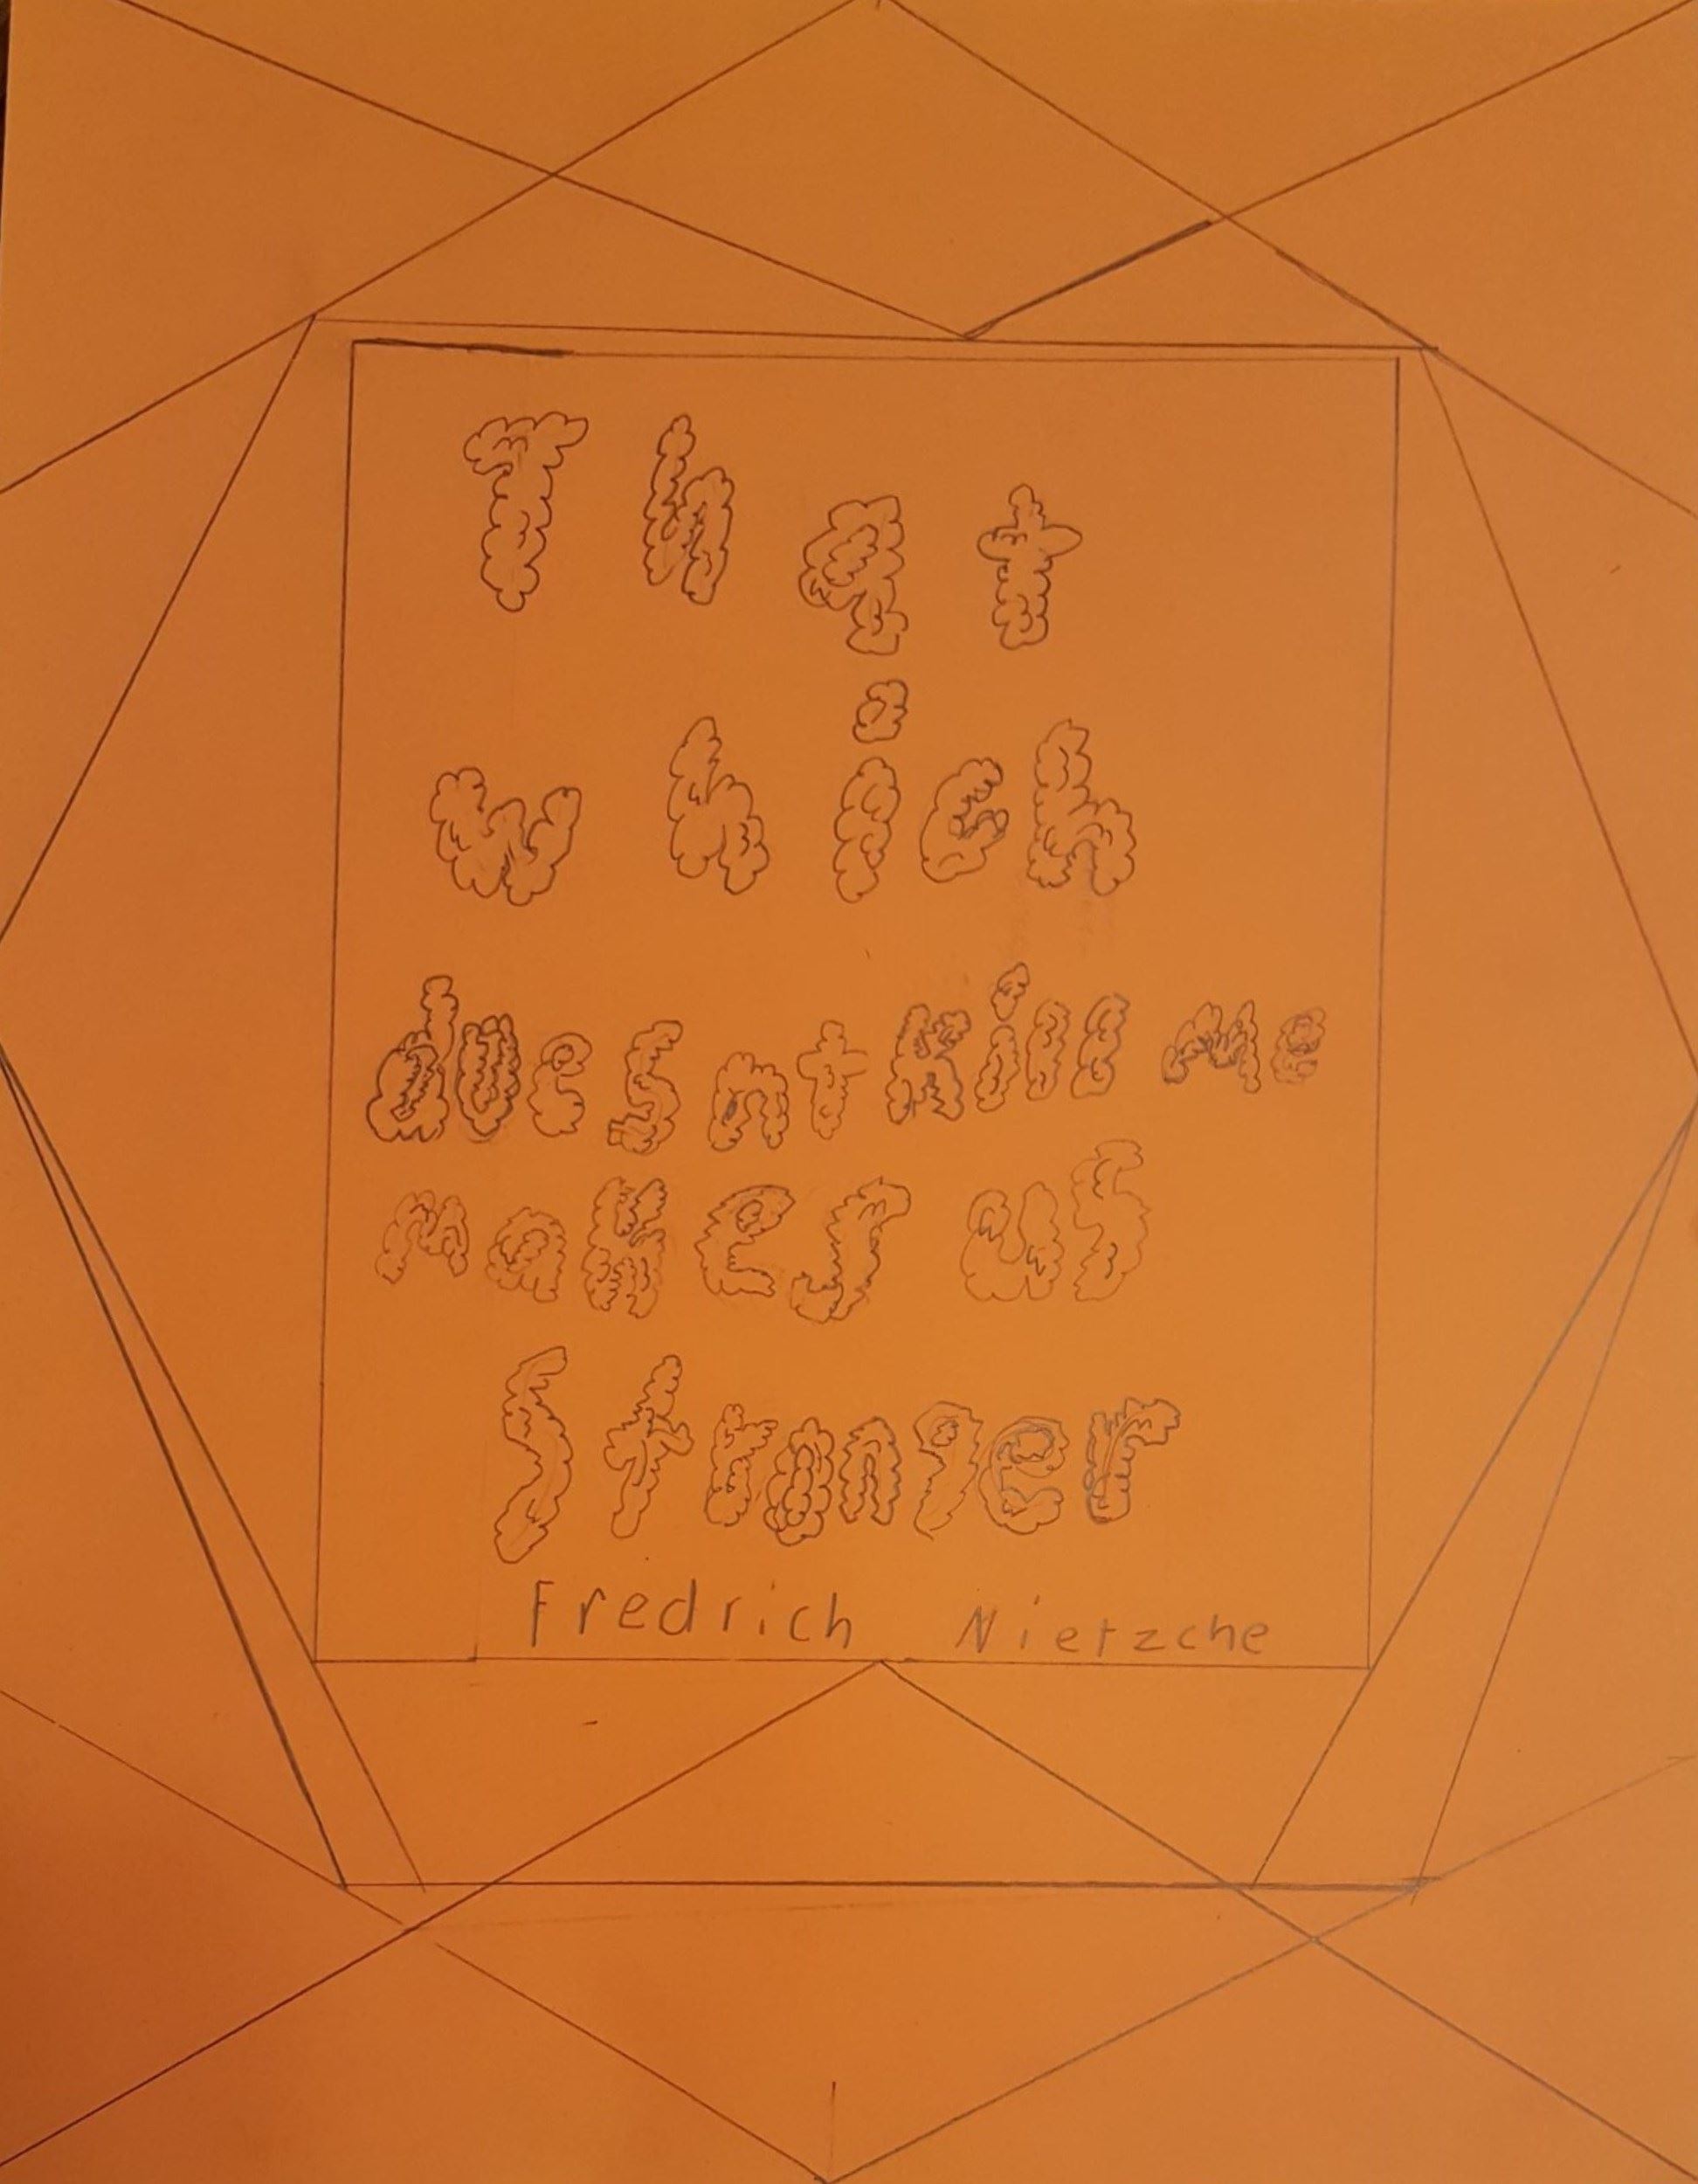 That
which
doesnt kill me
makes us
Stronger
Fredrich Nietzche